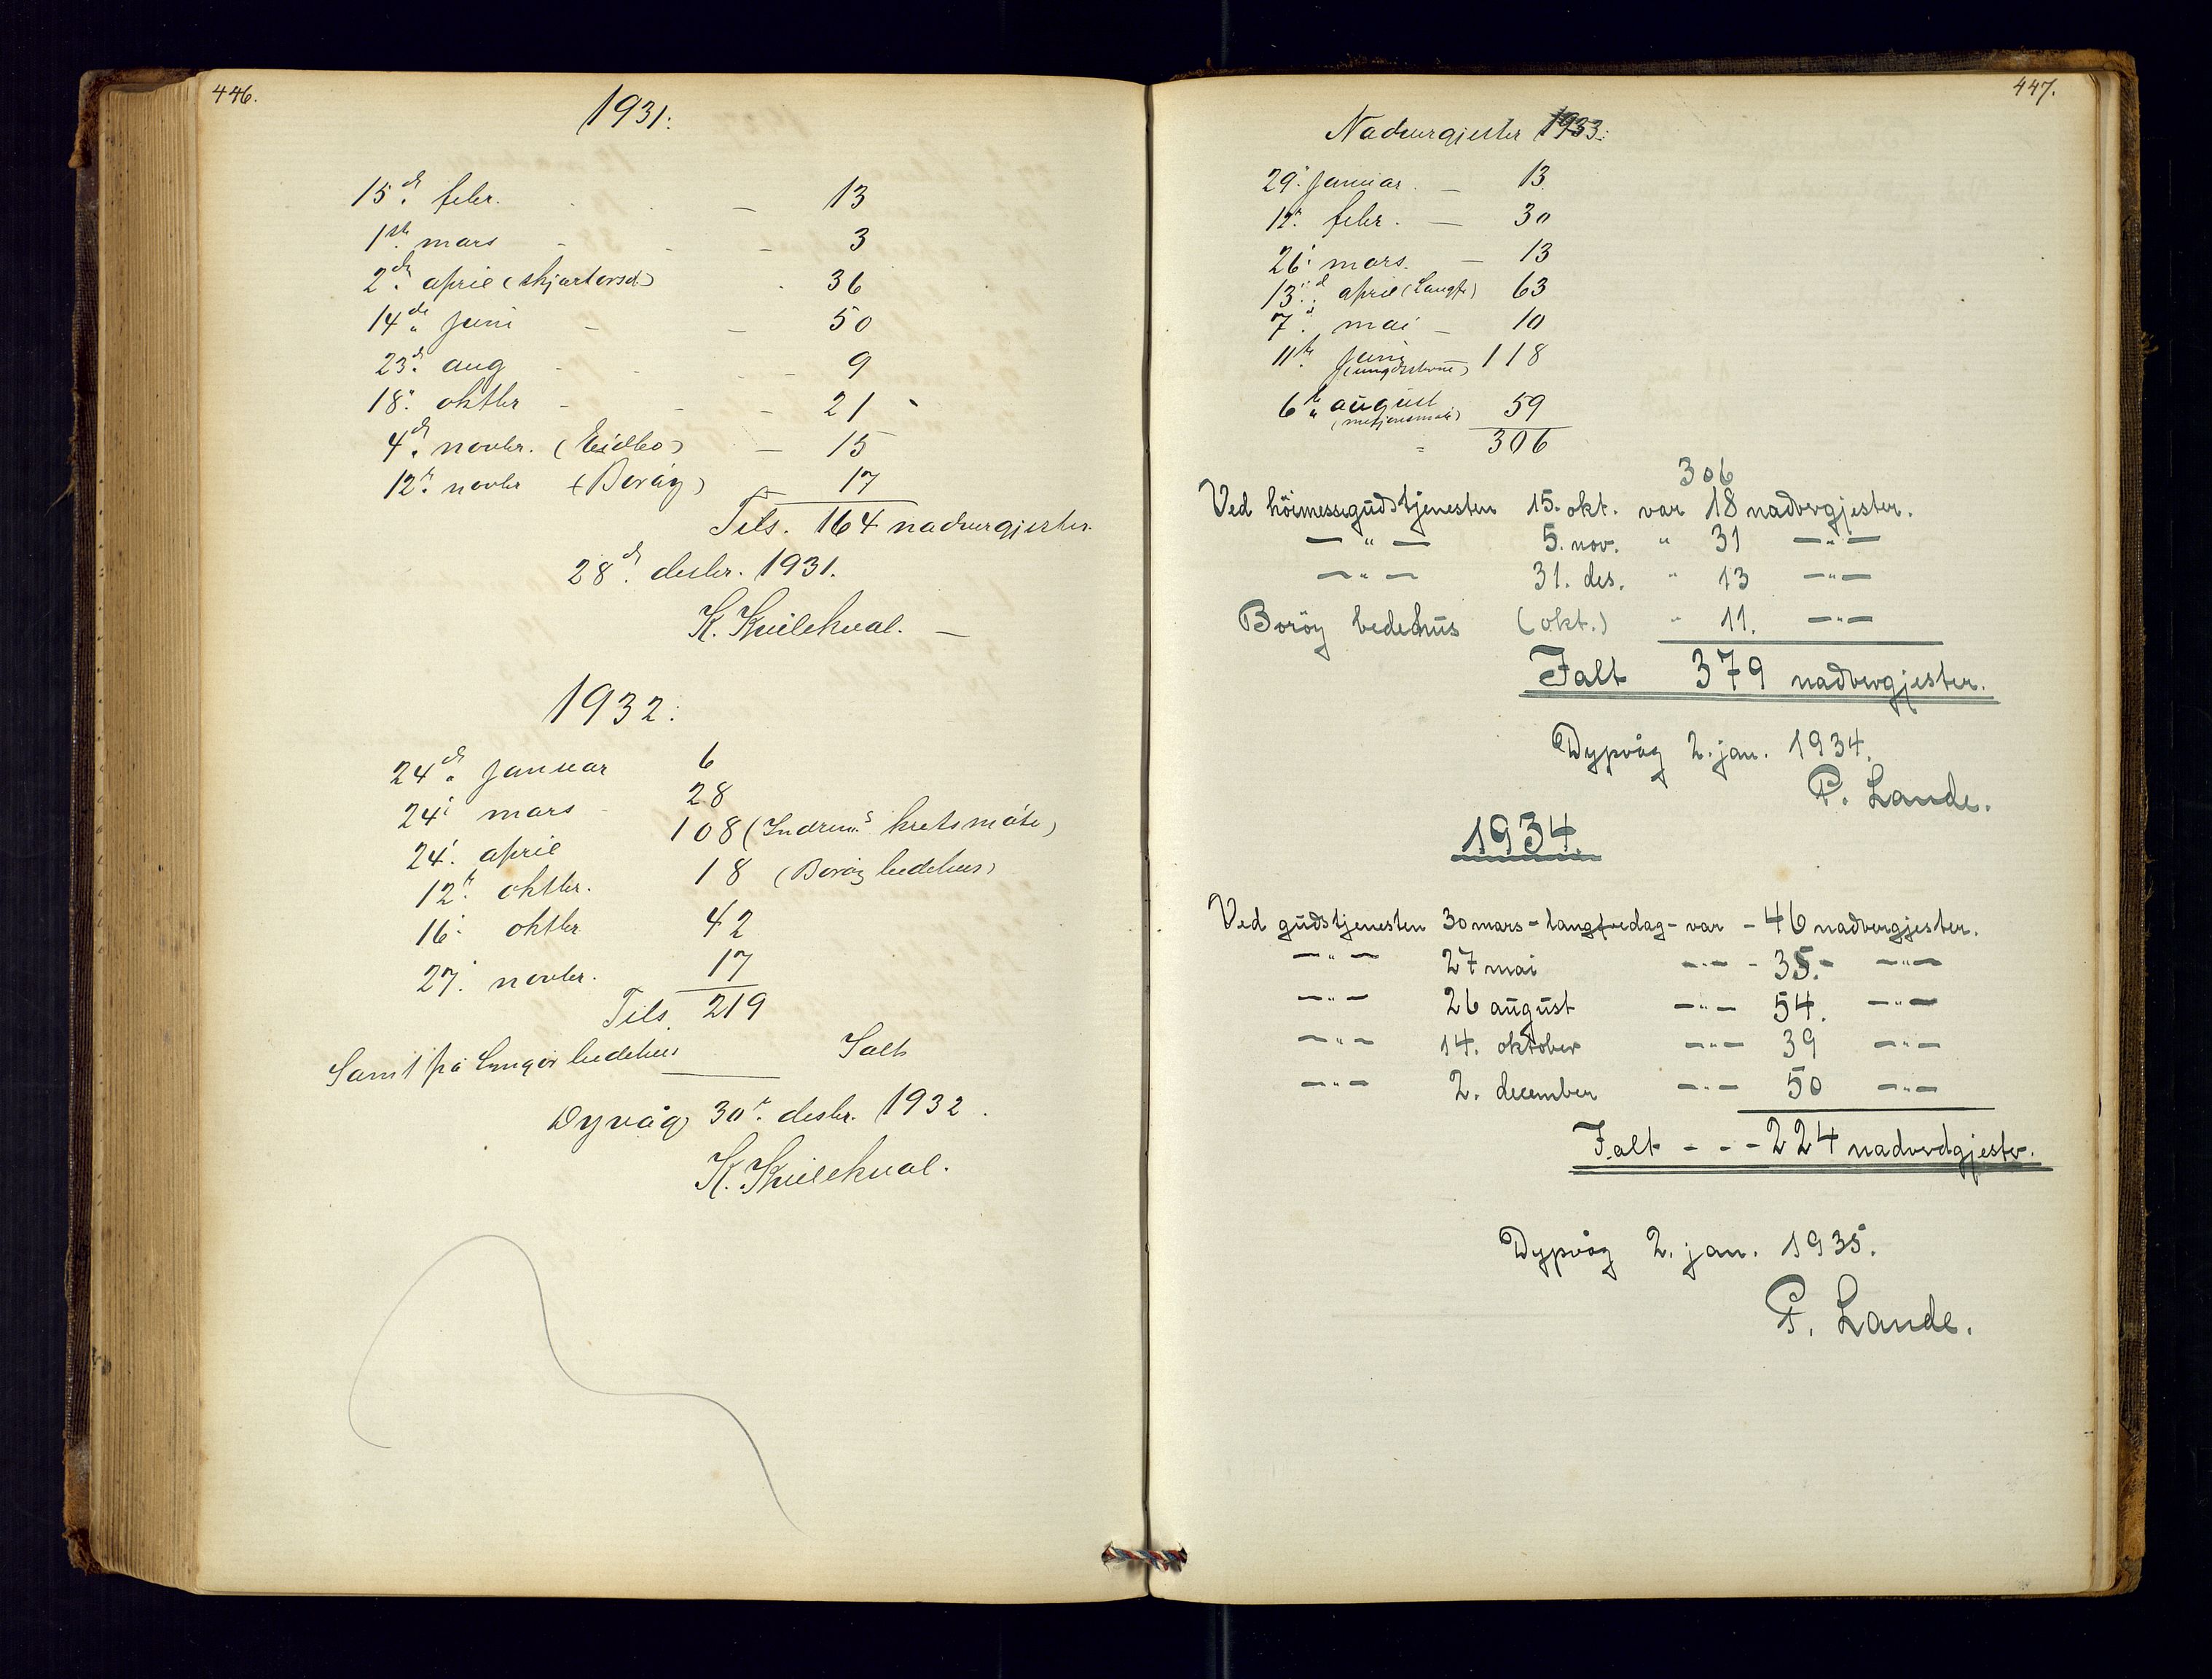 446.
1931.
15de febr. - 13
1ste mars - - - 3
2den april (skjærtorsd) 36
14de juni - - 50
23de aug - - - 9
18. oktbr - - - 21
4de novbr. (Eidbo) - 15
12te novbr (Borøy) 17
Tils. 164 nadvergjester.
28de desbr. 1931.
K. Kvilekval. —
1932:
24de januar 6
24. mars - 28
24. april 108 (Indrem.s kretsmøte)
12te oktbr. 18 (Borøy bedehus)
16. oktbr 42
27. novbr. 17
Tils. 219
Samt på Lyngør bedehus Ialt
Dyvåg 30te desbr. 1932.
K. Kvilekval.
447.
Nadvergjester 1933:
29. januar. - 13.
12te febr. — 30
26. mars. - 13
13de april (Langfr) 63
7de mai - 10
11te juni 118
(ungdsstevne)
6te august 59
306
306
Ved höimessegudstjenesten 15. okt. var 18 nadvergjester.
— " — 5. nov. " 31 — " —
— " — 31. des. " 13 — " —
Boröy bedehus (okt.) " 11. — " —
Ialt 379 nadvergjester.
Dypvåg 2. jan. 1934.
P. Lande.
1934.
Ved gudstjenesten 30 mars - langfredag - var - 46 nadvergjester.
— " — 27 mai — " — - 35. - — " —
— " — 26 august — " — 54. — " —
— " — 14. oktober — " — 39 — " —
— " — 2. december — " — 50 — " —
Ialt - - - 224 nadverdgjester.
Dypvåg 2. jan. 1935.
P. Lande.